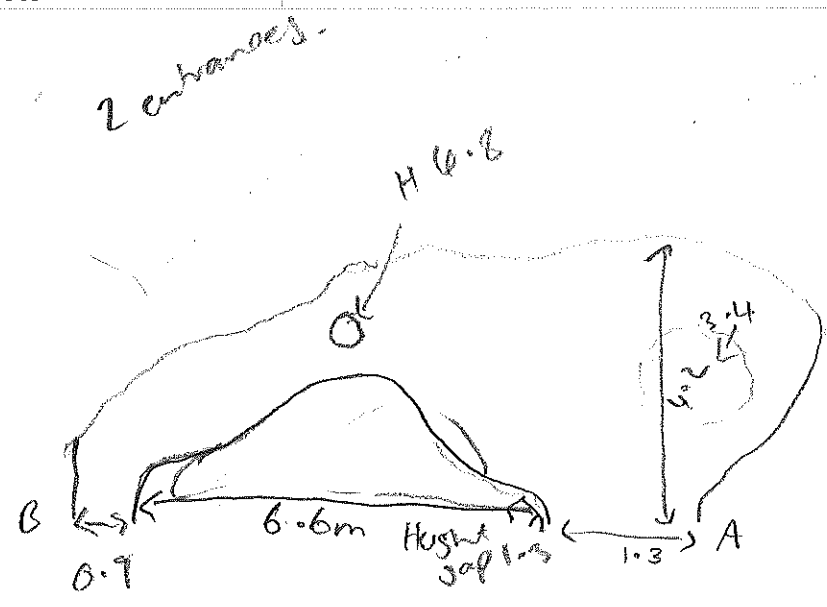 2 entrances.
H 6.8
3.4
4.2
B
0.9
6.6m
Height
gap 1.3
1.3
A